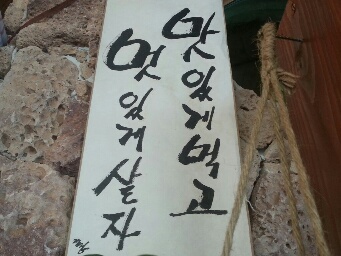 맛있게먹고
멋있게살자